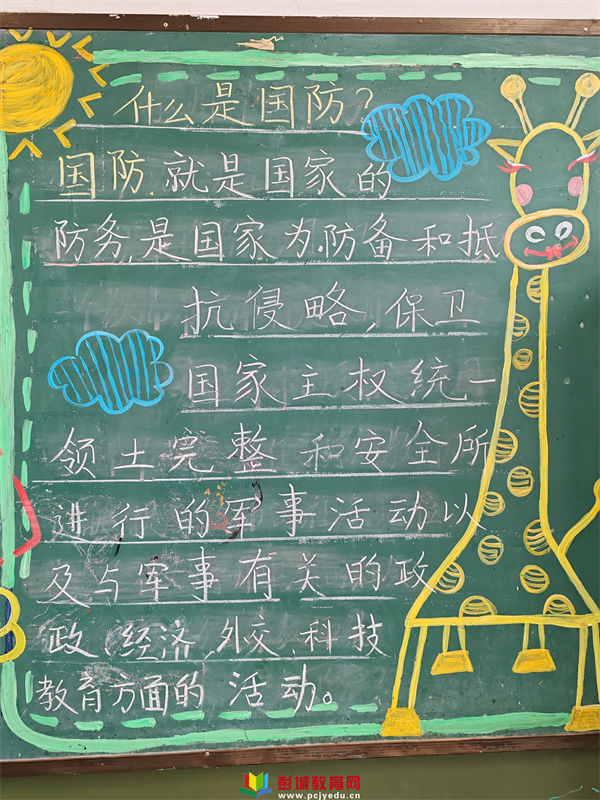 什么是国防?
国防.就是国家的
防务,是国家为.防备和抵
抗侵略,保卫
国家主权统一
领土完整和安全所
进行的军事活动以
及与军事有关的政
政、经济,外交、科技
教育方面的活动。
彭城教育网
www.pcjyedu.cn